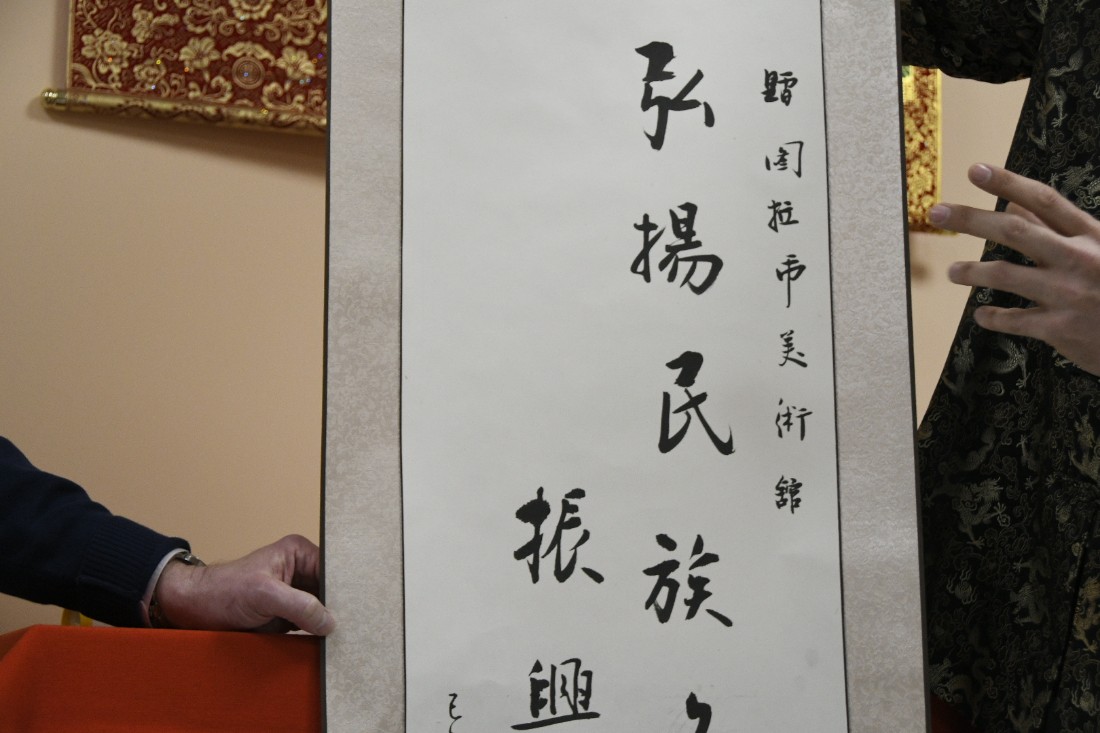 贈图拉市美術舘
弘揚民族
振興